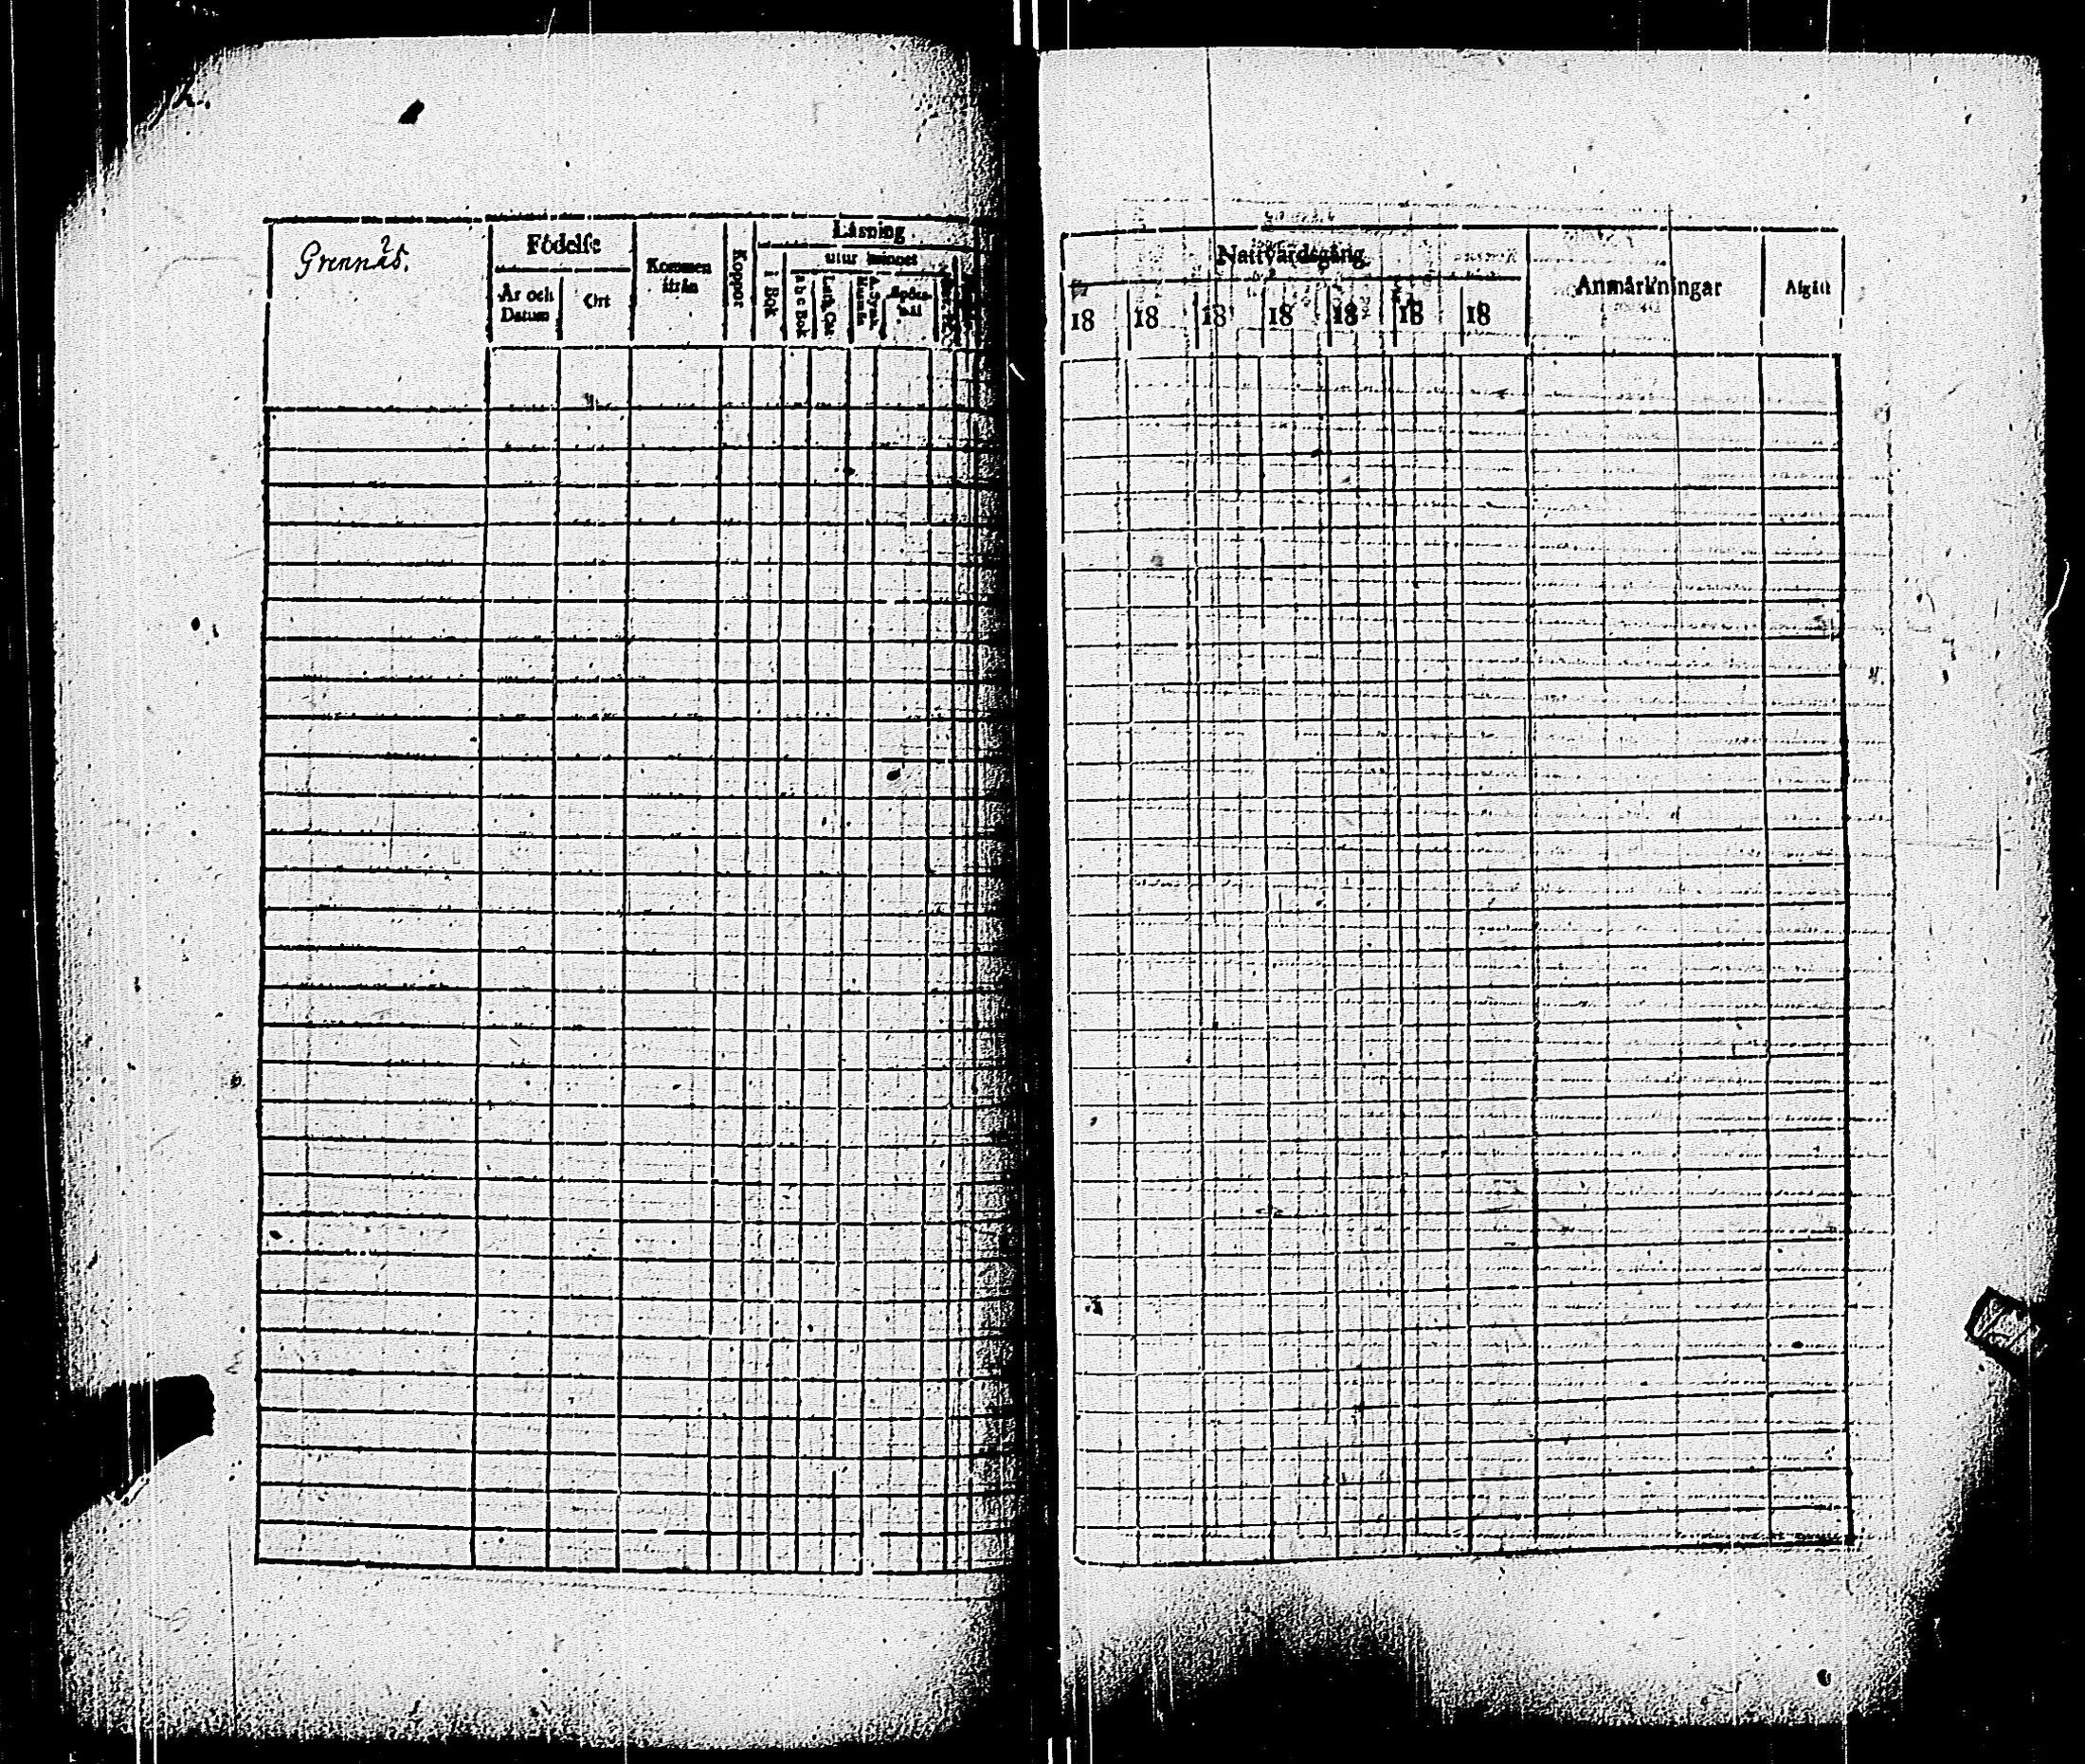 Grennäs.
Födelse
År och Datum
Ort
Kommen ifrån
Koppor
Läsning
utur minnet
i Bok
a b c Bok
Luth. Cat.
Spörsmål
Nattvardsgång
18 18 18 18 18 18 18
Anmärkningar
Afgått